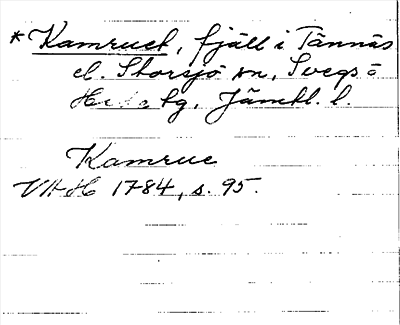 * Kamruet, fjäll i Tännäs
el. Storsjö sn, Svegs o
Hede tg, Jämtl. l.
Kamrue
VHH 1784, s. 95.